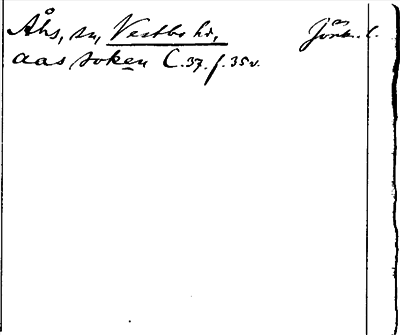 Åhs, sn, Vestbo hd, Jönk. l.
aas soken C.37. f. 35v.